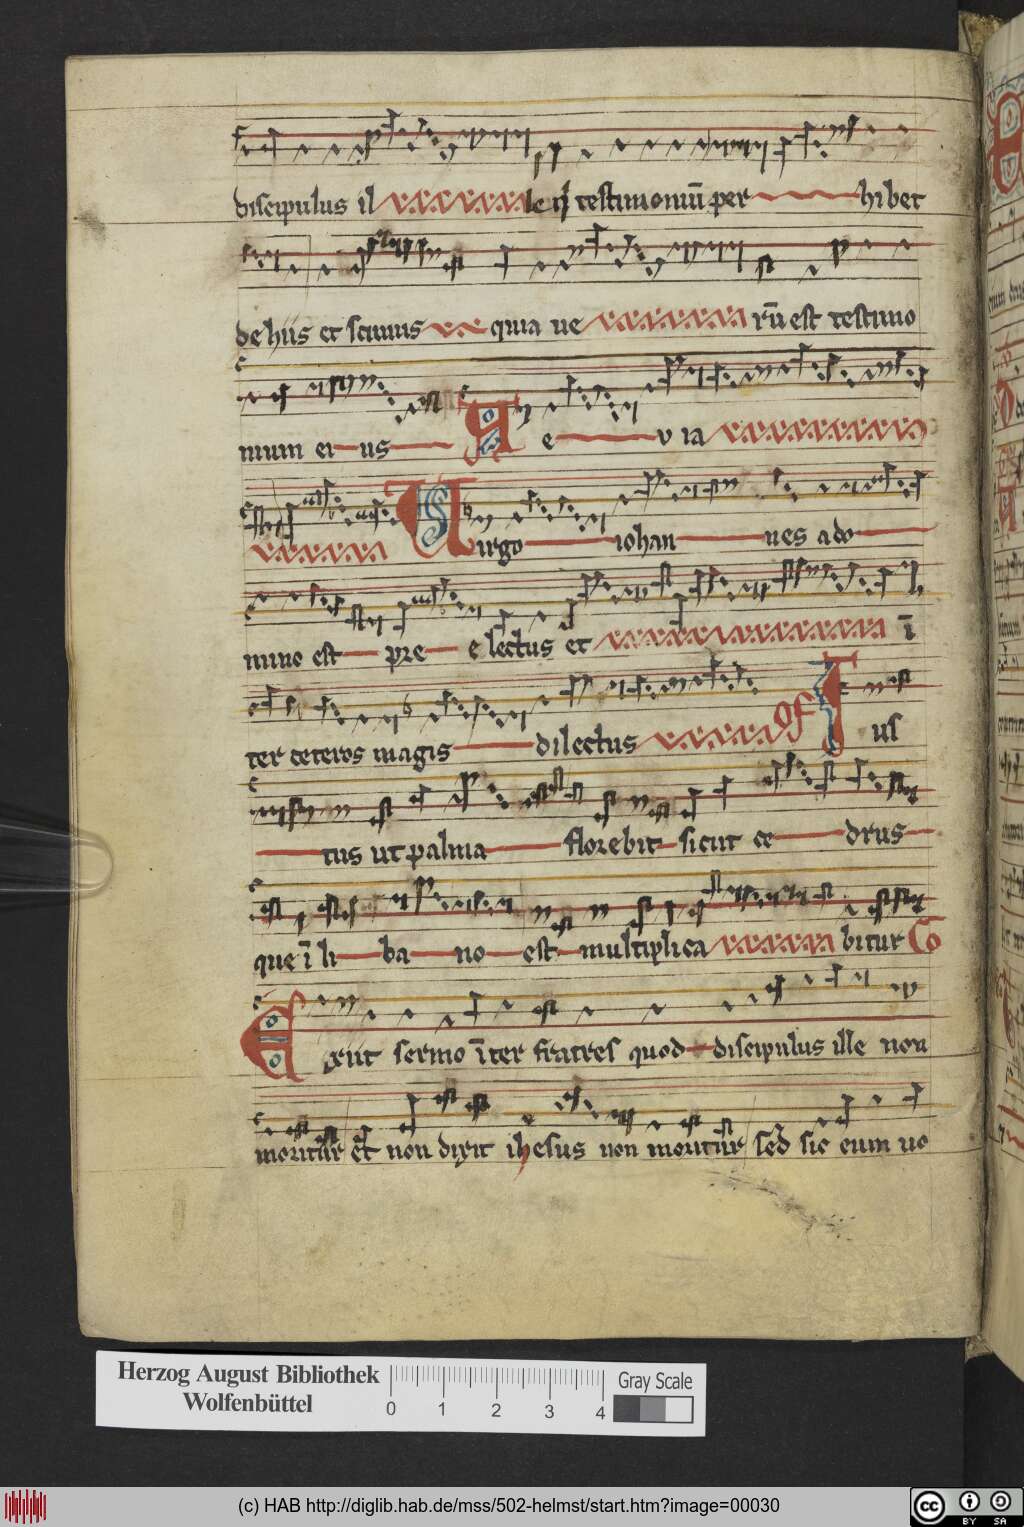 discipulus il le qͥ testimoniū per hibet
de hiis et scimus quia ue rū est testimo
nium ei us A e v ia
Virgo iohan nes a do
mino est pre e lectus et ī
ter ceteros magis dilectus Of Ius
tus ut palma florebit sicut ce drus
que ī li ba no est multiplica bitur Co
Exiit sermo īter fratres quod discipulus ille non
moritur et non dixit ihesus non moritur sed sic eum uo
Herzog August Bibliothek
Wolfenbüttel
0 1 2 3 4
Gray Scale
(c) HAB http://diglib.hab.de/mss/502-helmst/start.htm?image=00030
cc BY SA